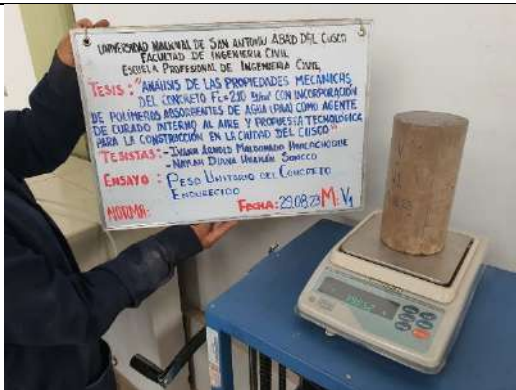 UNIVERSIDAD NACIONAL DE SAN ANTONIO ABAD DEL CUSCO
FACULTAD DE INGENIERIA CIVIL
ESCUELA PROFESIONAL DE INGENIERIA CIVIL
TESIS: "ANÁLISIS DE LAS PROPIEDADES MECÁNICAS
DEL CONCRETO F'c=210 CON INCORPORACIÓN
DE POLÍMEROS ABSORBENTES DE AGUA (PAA) COMO AGENTE
DE CURADO INTERNO AL AIRE Y PROPUESTA TECNOLÓGICA
PARA LA CONSTRUCCIÓN EN LA CIUDAD DEL CUSCO"
TESISTAS: - ARNOLD MALDONADO
- DIANA HUAMÁN
ENSAYO: PESO UNITARIO DEL CONCRETO
ENDURECIDO
NORMA: FECHA: 29.08.23 M: V1